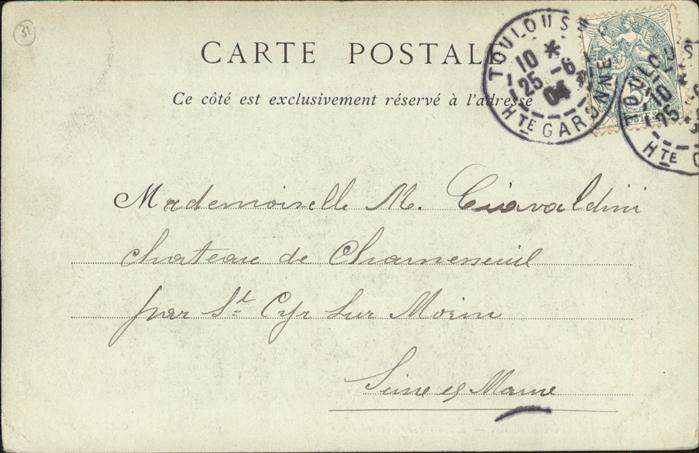 31
CARTE POSTALE
Ce côté est exclusivement réservé à l'adresse
TOULOUSE
10 *
25 -6
04
Hte GARONNE
TOULO
10 *
25
Hte G
Mademoiselle M. Ciavaldini
chateau de Chameneuil
par St Cyr sur Morin
Seine et Marne